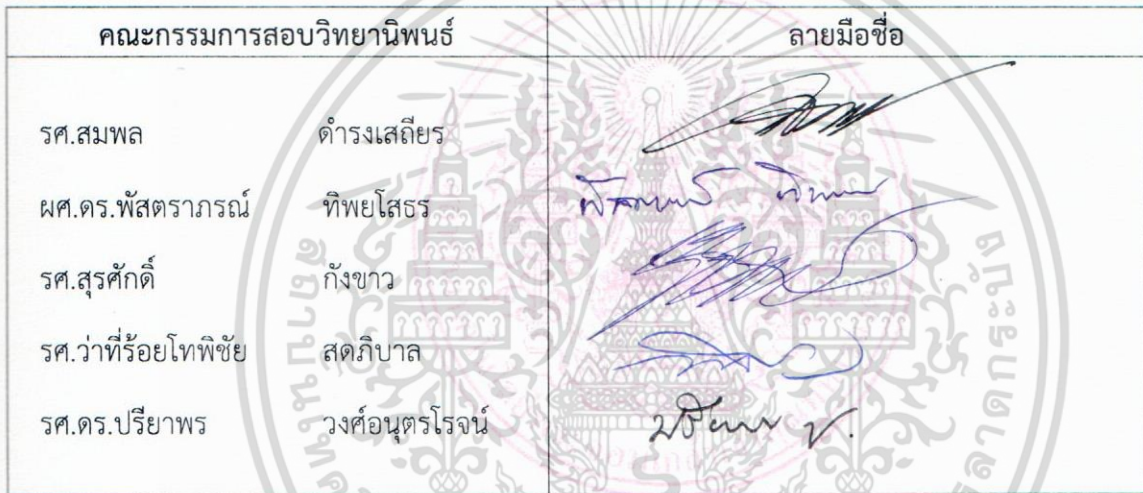 คณะกรรมการสอบวิทยานิพนธ์ ลายมือชื่อ
รศ.สมพล ดำรงเสถียร
ผศ.ดร.พัสตราภรณ์ ทิพยโสธร
รศ.สุรศักดิ์ กังขาว
รศ.ว่าที่ร้อยโทพิชัย สดภิบาล
รศ.ดร.ปรียาพร วงศ์อนุตรโรจน์